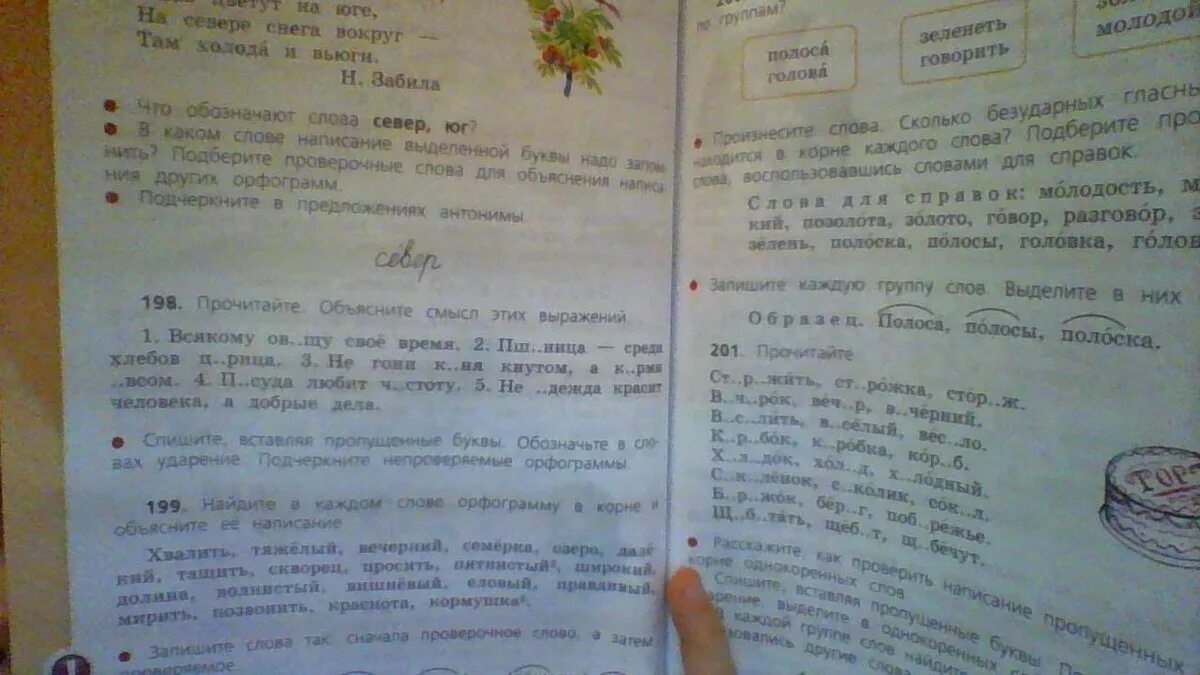 цветут на юге,
На севере снега вокруг —
Там холода́ и вьюги.
Н. Забила
• Что обозначают слова север, юг?
• В каком слове написание выделенной буквы надо запом
нить? Подберите проверочные слова для объяснения написа
ния других орфограмм.
• Подчеркните в предложениях антонимы
север
198. Прочитайте. Объясните смысл этих выражений.
1. Всякому ов..щу своё время. 2. Пш..ница — среди
хлебов ц..рица. 3. Не гони к..ня кнутом, а к..рми
..всом. 4. П..суда любит ч..стоту. 5. Не ..дежда красит
человека, а добрые дела.
• Спишите, вставляя пропущенные буквы. Обозначьте в сло
вах ударение. Подчеркните непроверяемые орфограммы.
199. Найдите в каждом слове орфограмму в корне и
объясните её написание
Хвалить, тяжёлый, вечерний, семёрка, озеро, далё
кий, тащить, скворец, просить, пятнистый², широкий,
долина, волнистый, вишнёвый, еловый, правдивый,
мирить, позвонить, краснота, кормушка².
• Запишите слова так: сначала проверочное слово, а затем
проверяемое.
по группам?
полоса́
голова́
зеленеть
говорить
молодо
• Произнесите слова. Сколько безударных гласны
находится в корне каждого слова? Подберите про
слова, воспользовавшись словами для справок.
Слова для справок: мо́лодость, м
кий, позоло́та, зо́лото, го́вор, разгово́р, з
зе́лень, поло́ска, по́лосы, голо́вка, го́лов
• Запишите каждую группу слов. Выделите в них
Образец. Полоса́, по́лосы, поло́ска.
201. Прочитайте
Ст..р..жи́ть, ст..ро́жка, сто́р..ж.
В..ч..ро́к, ве́ч..р, в..че́рний.
В..с..ли́ть, в..сёлый, ве́с..ло.
К..р..бо́к, к..ро́бка, ко́р..б.
Х..л..до́к, хо́л..д, х..ло́дный.
С..к..лёнок, с..ко́лик, со́к..л.
Б..р..жо́к, бе́р..г, поб..ре́жье.
Щ..б..та́ть, ще́б..т, щ..бе́чут.
ТОР
• Расскажите, как проверить написание пропущенных
корне однокоренных слов
Спишите, вставляя пропущенные буквы. По
ударение, выделите в однокоренных
каждой группе слов найдите
другие слова